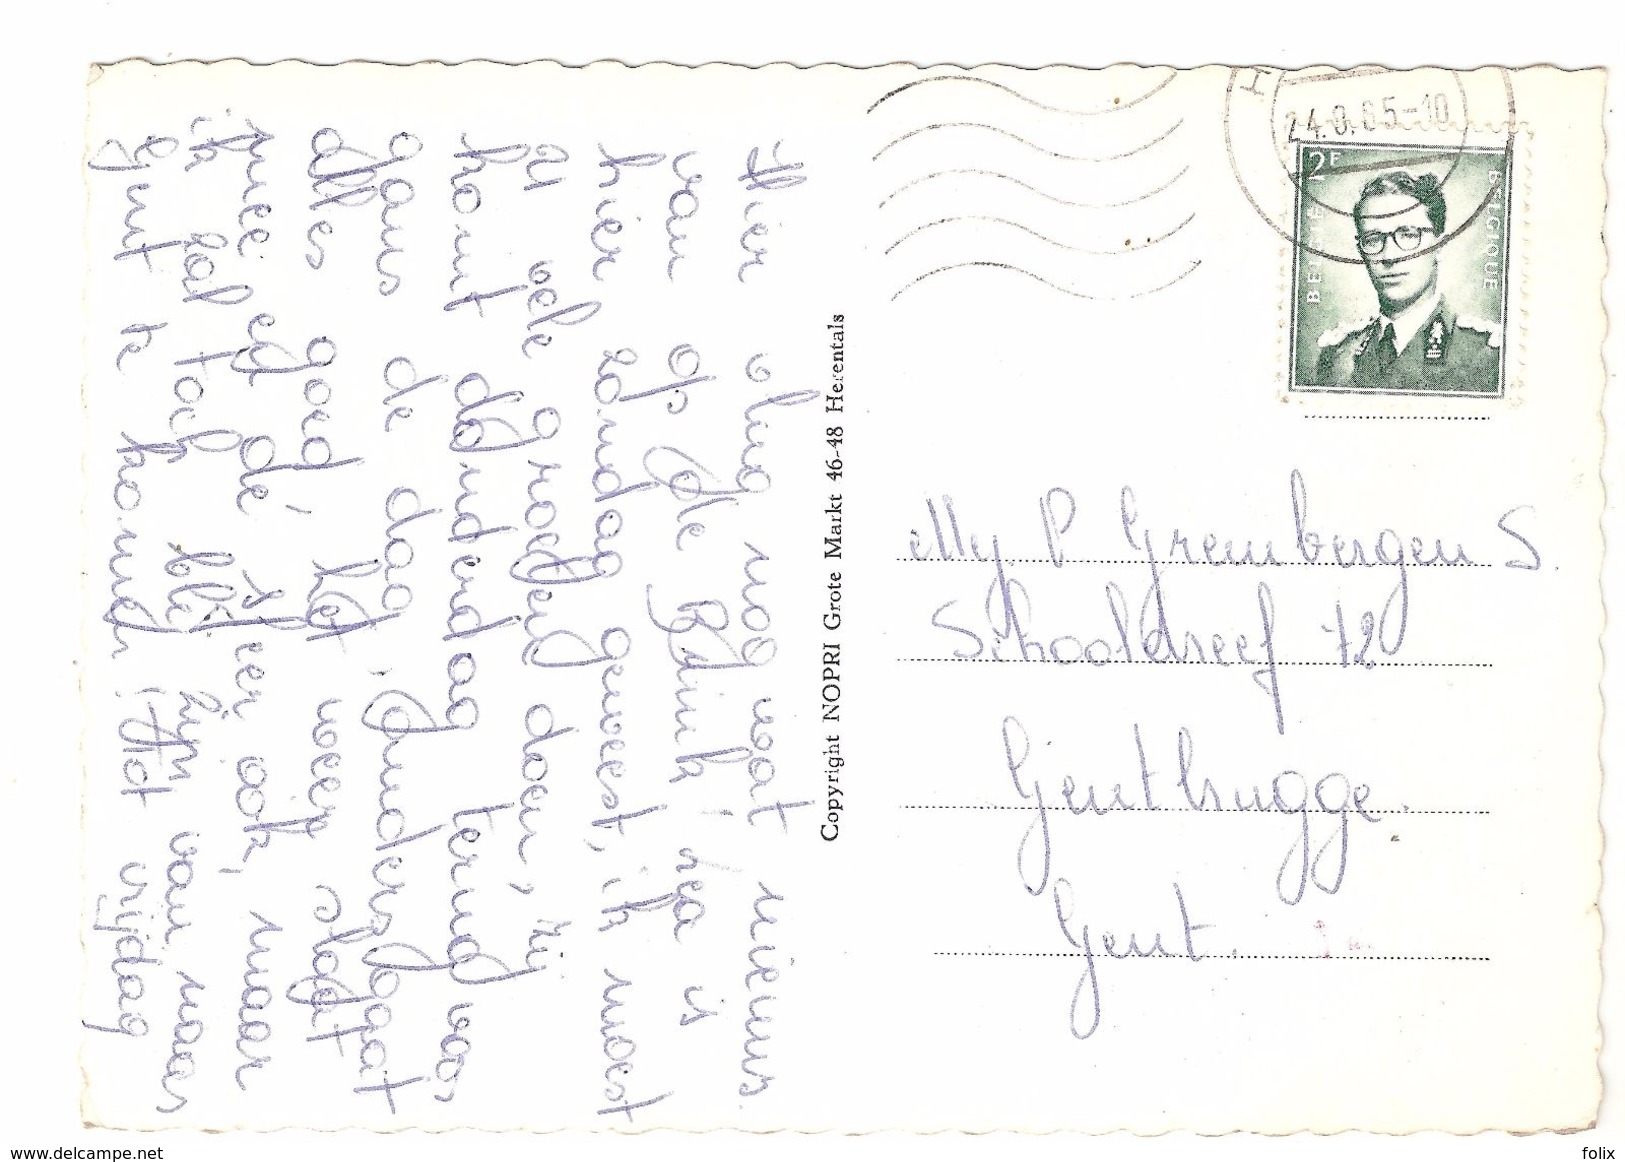 Hier vlug nog wat nieuws
van op "De Brink"! Rea is
hier zondag geweest, ik moest
U vele groetjes doen, zij
komt donderdag terug voor
gans de dag, Anders gaat
alles goed, het weer slaat
mee eg de sfeer ook, maar
ik zal toch blij zijn van naar
Gent te komen! Tot vrijdag
Copyright NOPRI Grote Markt 46-48 Herentals
H
24.8.65-10
2F
BELGIE
BELGIQUE
Mej P Grembergen S.
Schooldreef 72
Gentbrugge.
Gent.
www.delcampe.net
felix